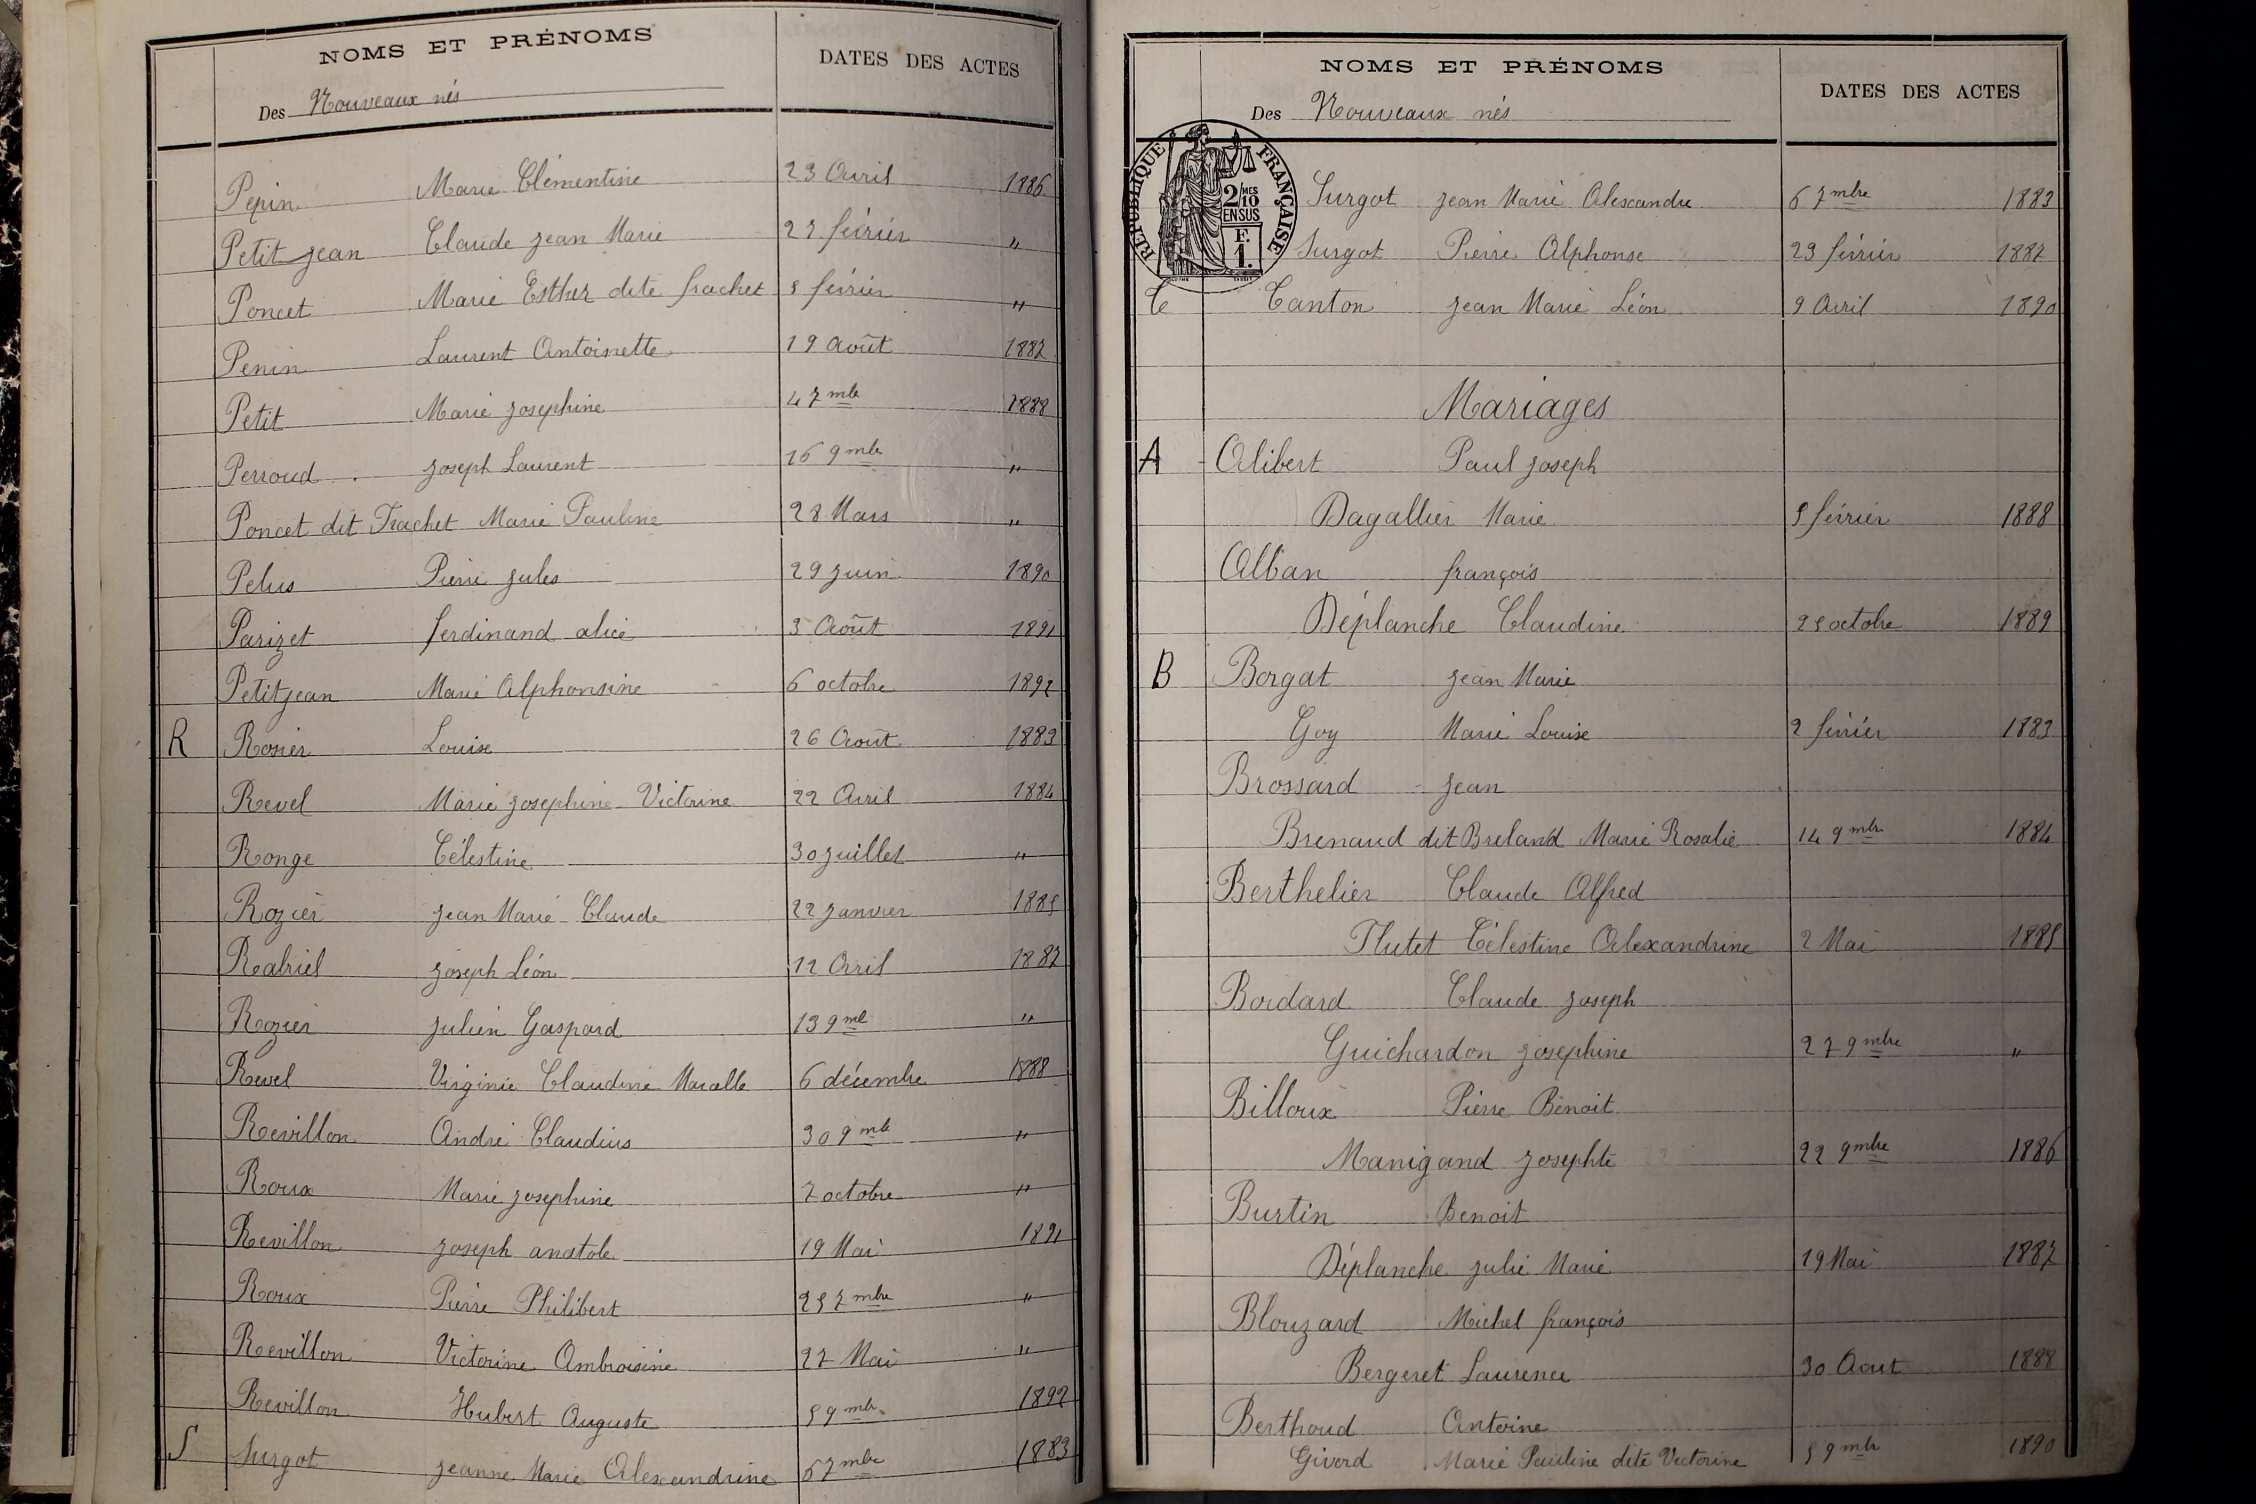 NOMS ET PRÉNOMS DATES DES ACTES
Des Nouveaux nés
Pepin Marie Clémentine 23 Avril 1886
Petit jean Claude jean Marie 27 février "
Poncet Marie Esther dite frachet 5 février "
Penin Laurent Antoinette 19 août 1887
Petit Marie josephine 4 7mbe 1888
Perroud . joseph Laurent 16 9mbe "
Poncet dit Frachet Marie Pauline 28 Mars "
Pelus Pierre jules 29 juin 1890
Parizet ferdinand alice 3 Août 1891
Petitjean Marie Alphonsine 6 octobre 1892
R Rosier Louise 26 Août 1883
Revel Marie josephine Victorine 22 Avril 1884
Ronge Célestine 30 juillet "
Rozier jean Marie Claude 22 janvier 1885
Rabriel joseph Léon 12 Avril 1887
Rozier julien Gaspard 13 9mb "
Revel Virginie Claudine 6 décembre 1888
Revillon André Claudius 30 9mb "
Roux Marie josephine 7 octobre "
Revillon joseph anatole 19 Mai 1891
Roux Pierre Philibert 25 7mbre "
Revillon Victorine Ambroisine 27 Mai "
Revillon Hubert Auguste 5 9mbr 1892
S Surgot jeanne Marie Alexandrine 6 7mbre 1883
NOMS ET PRÉNOMS DATES DES ACTES
Des Nouveaux nés
RÉPUBLIQUE FRANÇAISE
2/10MES
EN SUS
F.
1.
Surgot jean Marie Alexandre 6 7mbre 1883
Surgot Pierre Alphonse 23 février 1887
T Tanton jean Marie Léon 9 Avril 1890
Mariages
A Alibert Paul joseph
Dagallier Marie 5 février 1888
Alban françois
Déplanche Claudine 25 octobre 1889
B Borgat jean Marie
Goy Marie Louise 2 février 1883
Brossard jean
Brenaud dit Breland Marie Rosalie 14 9mbre 1884
Berthelier Claude Alfred
Flutet Célestine Alexandrine 2 Mai 1885
Boidard Claude joseph
Guichardon josephine 27 9mbre "
Billoux Pierre Benoit
Manigand josephte 22 9mbre 1886
Burtin Benoit
Déplanche julie Marie 19 Mai 1887
Blouzard Michel françois
Bergeret Laurence 30 Aout 1888
Berthoud Antoine
Giverd Marie Pauline dite Victorine 5 9mbr 1890